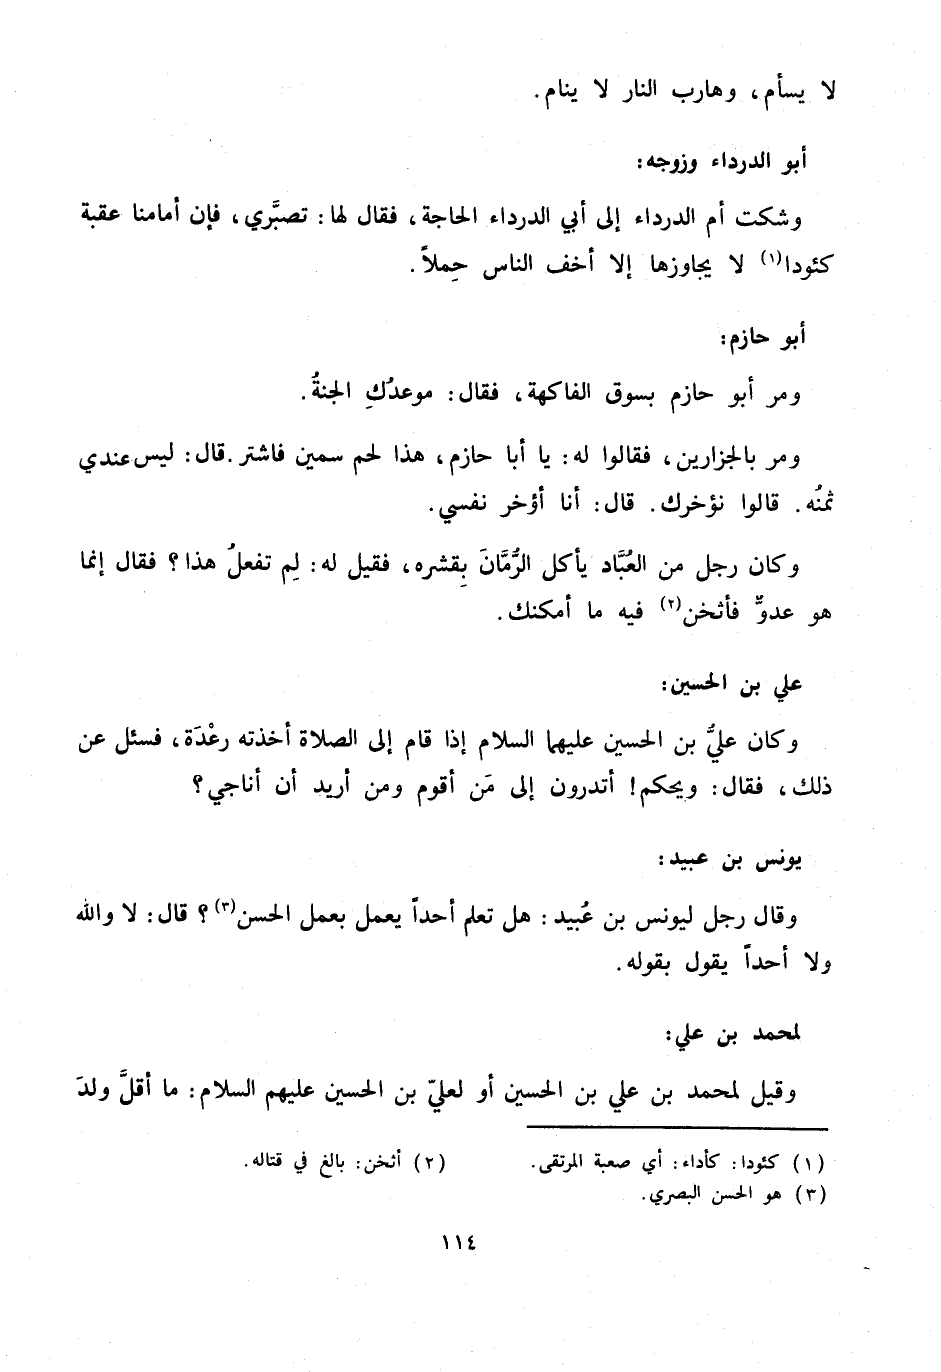 لا يسأم، وهارب النار لا ينام.
أبو الدرداء وزوجه:
وشكت أم الدرداء إلى أبي الدرداء الحاجة، فقال لها: تصبَّري، فإن أمامنا عقبة
كئودا(١) لا يجاوزها إلا أخف الناس حِملاً.
أبو حازم:
ومر أبو حازم بسوق الفاكهة، فقال: موعدُكِ الجنةُ.
ومر بالجزارين، فقالوا له: يا أبا حازم، هذا لحم سمين فاشتر. قال: ليس عندي
ثمنُه. قالوا نؤخرك. قال: أنا أؤخر نفسي.
وكان رجل من العُبَّاد يأكل الرُّمَّانَ بِقشره، فقيل له: لِم تفعلُ هذا؟ فقال إنما
هو عدوٌّ فأثخن(٢) فيه ما أمكنك.
علي بن الحسين:
وكان عليُّ بن الحسين عليهما السلام إذا قام إلى الصلاة أخذته رعْدَة، فسئل عن
ذلك، فقال: ويحكم! أتدرون إلى مَن أقوم ومن أريد أن أناجي؟
يونس بن عبيد:
وقال رجل ليونس بن عُبيد: هل تعلم أحداً يعمل بعمل الحسن(٣)؟ قال: لا والله
ولا أحداً يقول بقوله.
لمحمد بن علي:
وقيل لمحمد بن علي بن الحسين أو لعليّ بن الحسين عليهم السلام: ما أقلَّ ولدَ
(١) كئودا: كأداء: أي صعبة المرتقى. (٢) أثخن: بالغ في قتاله.
(٣) هو الحسن البصري.
١١٤